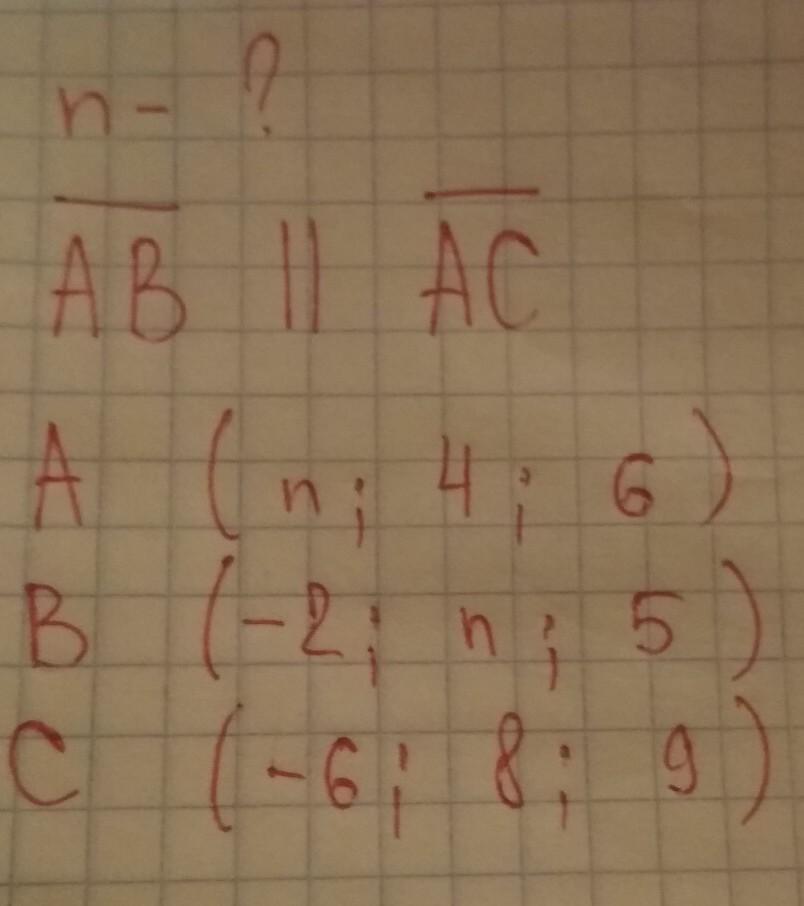 n - ?
AB || AC
A (n; 4; 6)
B (-2; n; 5)
C (-6; 8; 9)